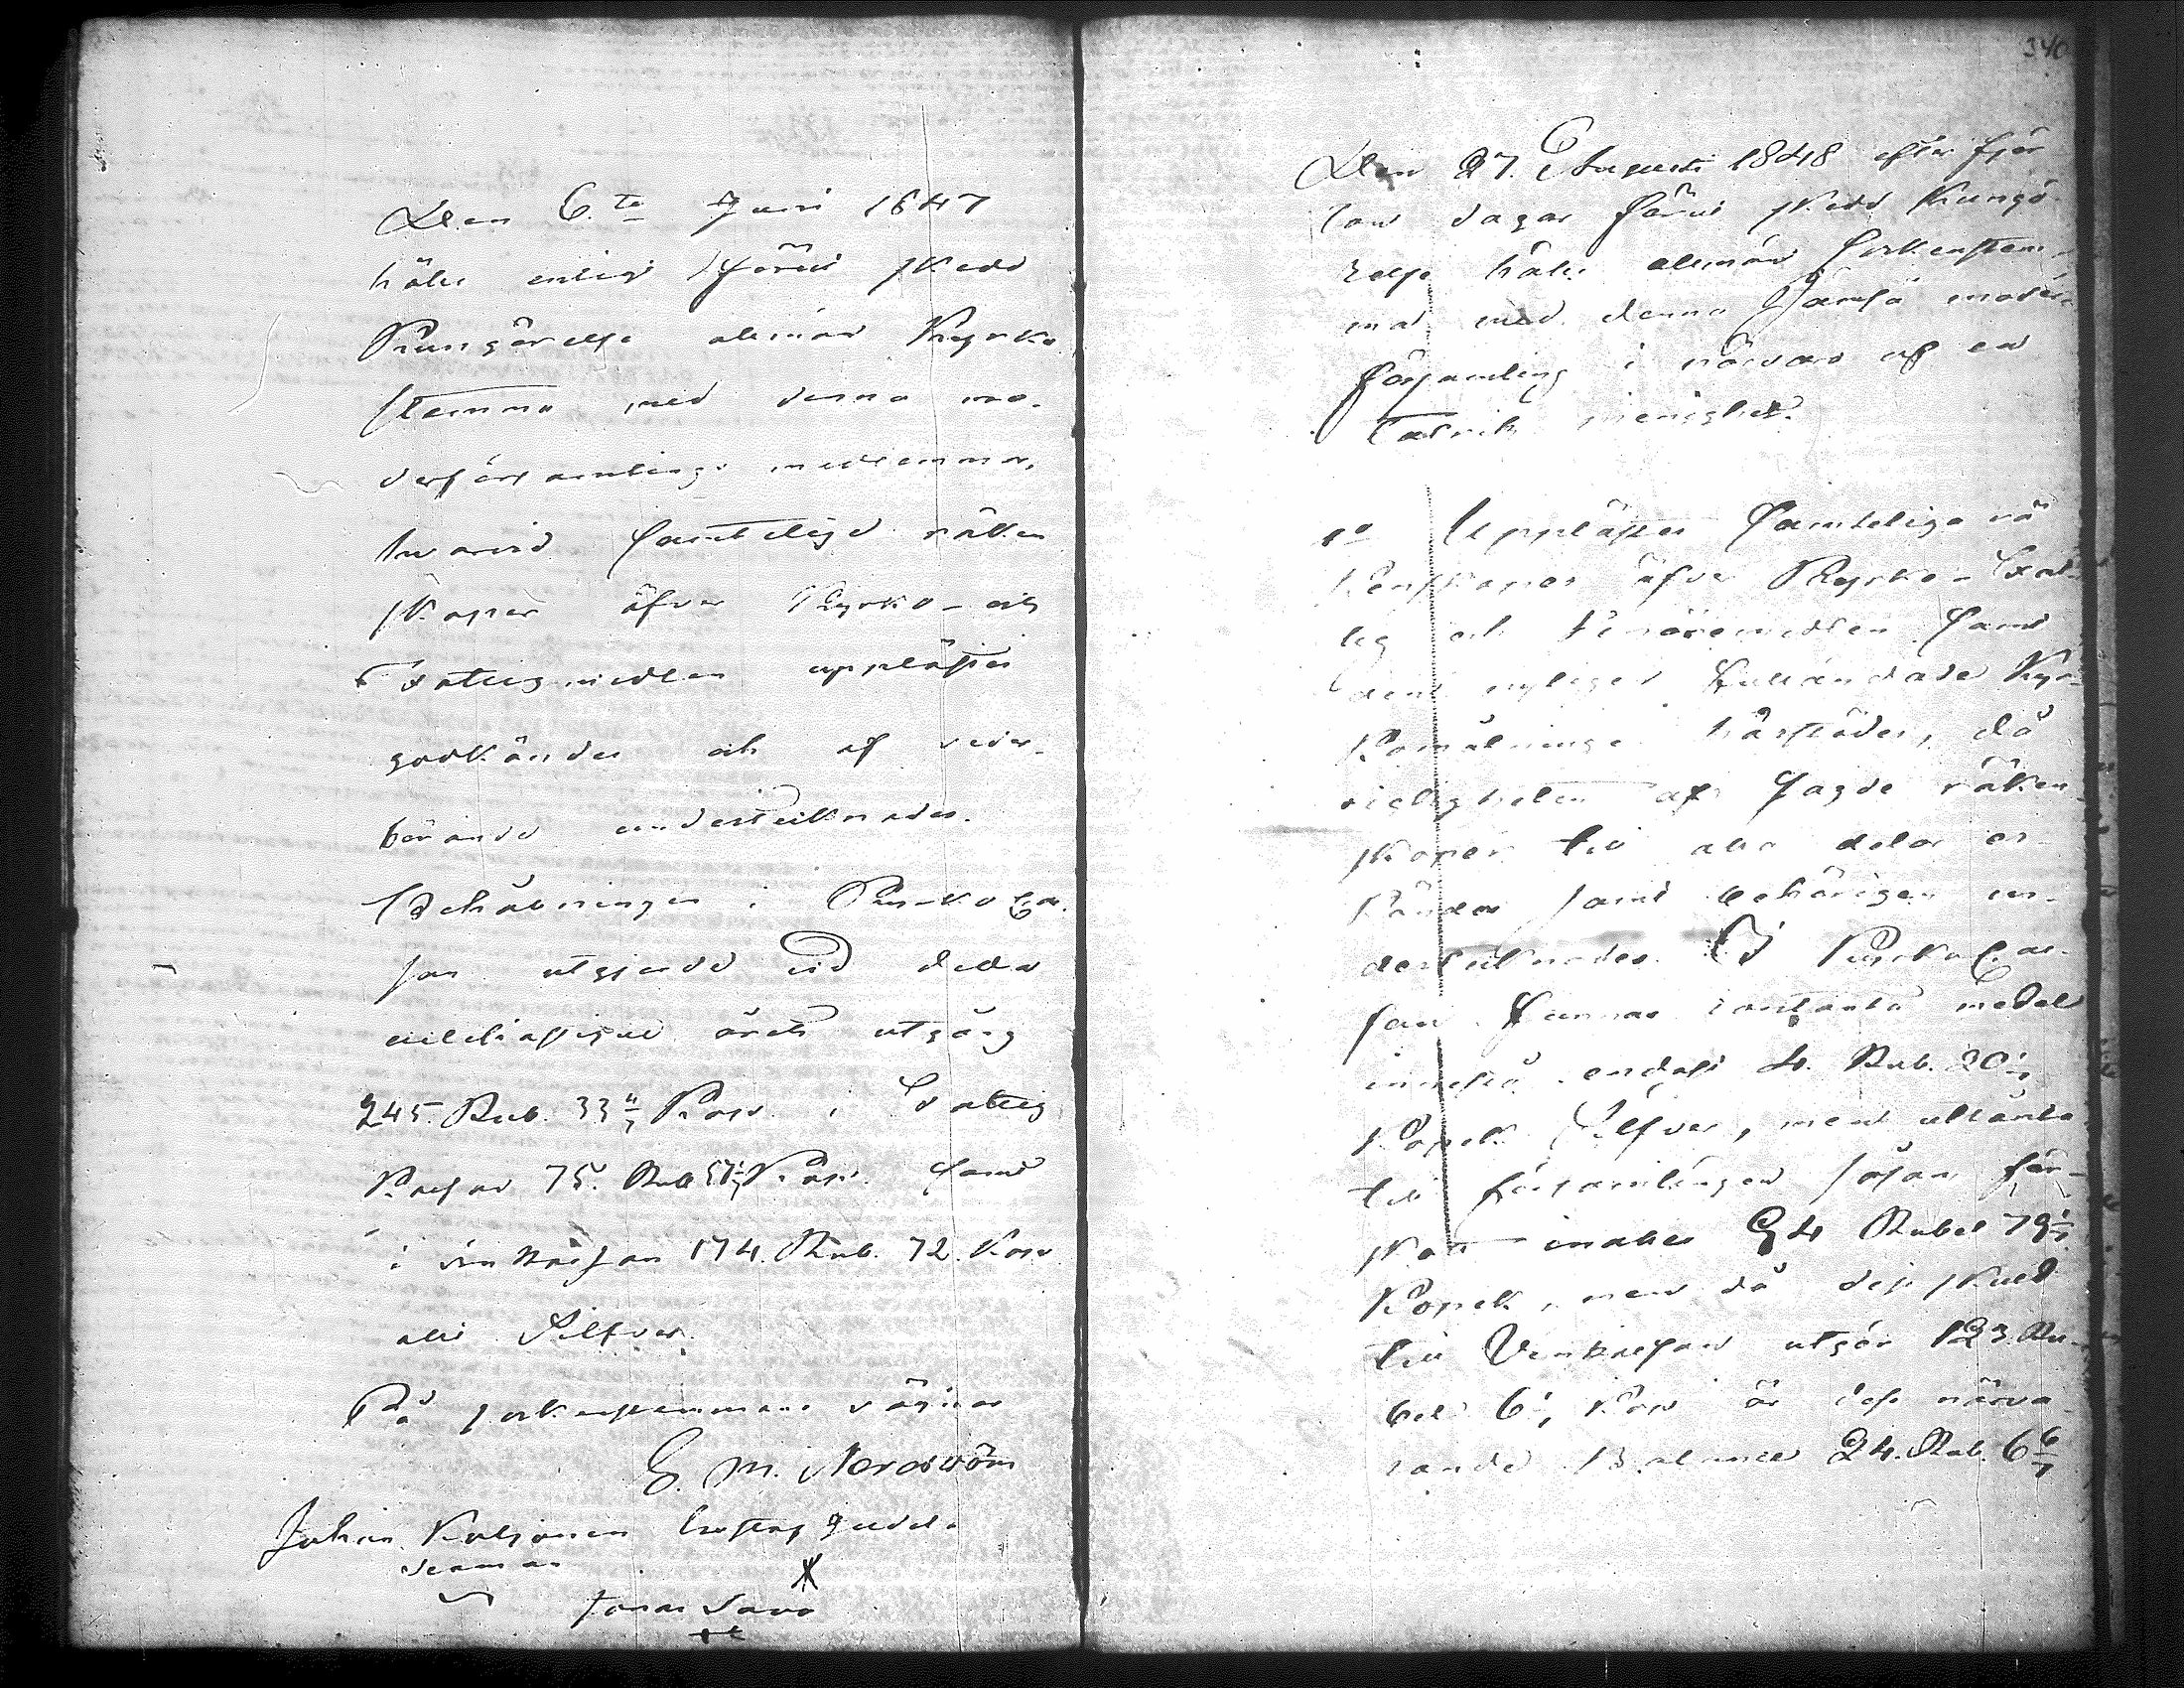 Den 6.te Juni 1847
hölts enligt förut skedd
Kungörelse allmän Kyrko
stemma med denna mo-
derförsamlings medlemmar,
hvarvid samtelige räken
skaper öfver Kyrko- och
Fattigmedlen upplästes
godkändes och af veder-
börande undertecknades.
Behållningen i Kyrkocas-
san utgjorde vid detta
ecclesiastique årets utgång
245. Rub. 33 4/7 Kop. i Fattig
Kassan 75. Rub 57 1/7 Kop. samt
i vin kassan 174. Rub. 72. Kop
allt Silfver.
På sockenstemmans vägnar
E. M. Nordström
Johan Koljonen Gustaf
Jonas Savo
340
Den 27. Augusti 1848 efter fjor
ton dagar förut skedd Kungö-
relse hölts allmän sockenstem-
ma med denna Jamsä moder-
församling i närvaro af en
talrik menighet.
1o Upplästes samtelige rä
kenskaper öfver Kyrko- Fat-
tig och Vinöremedlen samt
den nyligen fulländade Kyr-
komålninge härstädes, då
rigtigheten af sagde räken-
skaper till alla delar er-
kändes samt behörigen un-
dertecknades. I Kyrkocas-
san funnos contanta medel
innestå endast 4. Rub. 20 1/7
Kopek Silfver, men utlånta
till församlingen såsom för-
skott innalles 94 Rubel 79 1/7
Kopek, men då dess skuld
till Vinkassan utgör 123. Ru-
bel 6 1/7 Kop är dess närva-
rande Balance 24. Rub. 6 6/7